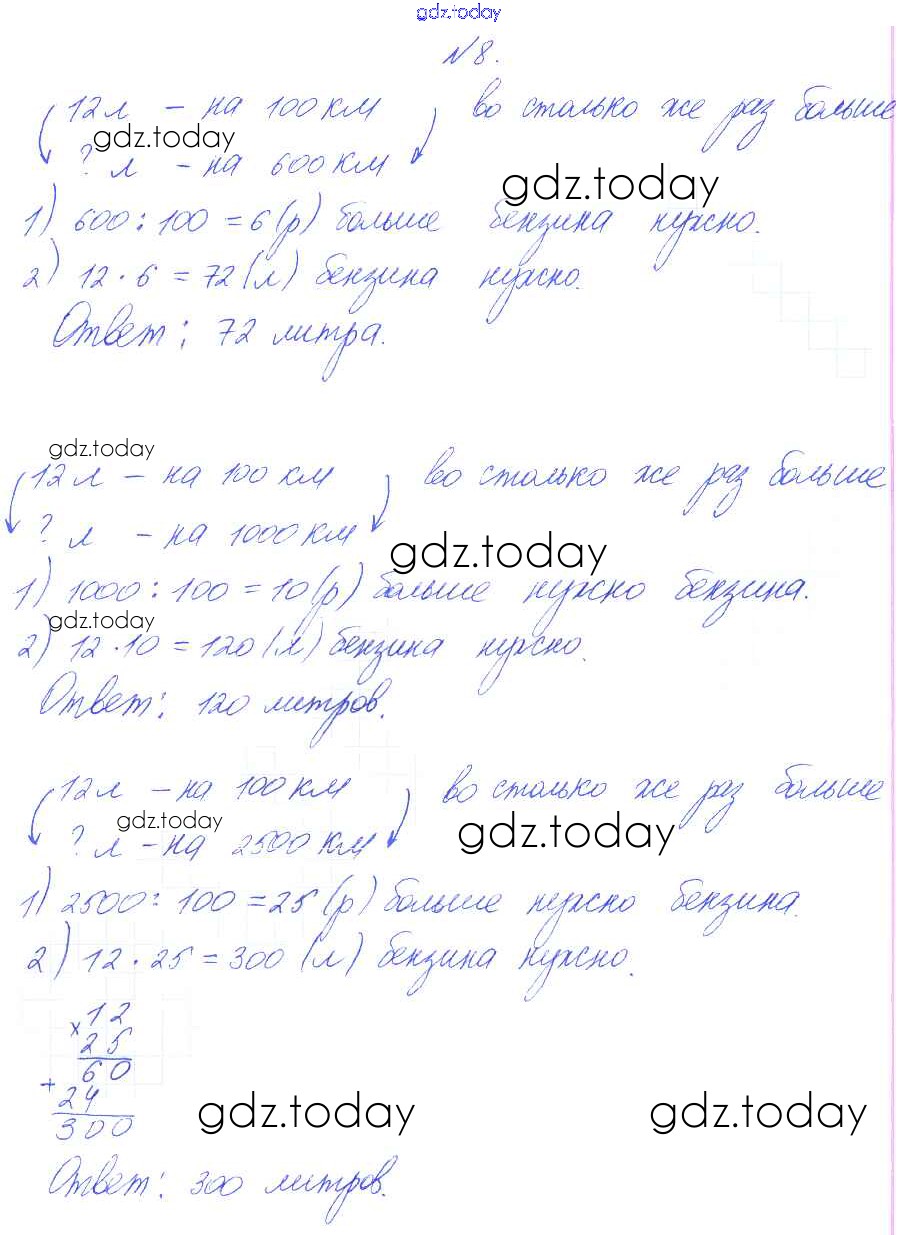 gdz.today
№8.
12л – на 100 км во столько же раз больше
gdz.today
? л – на 600 км
gdz.today
1) 600 : 100 = 6 (р) больше бензина нужно.
2) 12 · 6 = 72 (л) бензина нужно.
Ответ: 72 литра.
gdz.today
12 л – на 100 км во столько же раз больше
? л – на 1000 км
gdz.today
1) 1000 : 100 = 10 (р) больше нужно бензина.
gdz.today
2) 12 · 10 = 120 (л) бензина нужно.
Ответ: 120 литров.
12 л – на 100 км во столько же раз больше
gdz.today
? л – на 2500 км
gdz.today
1) 2500 : 100 = 25 (р) больше нужно бензина.
2) 12 · 25 = 300 (л) бензина нужно.
x 12
25
60
+ 24
300
gdz.today
gdz.today
Ответ: 300 литров.